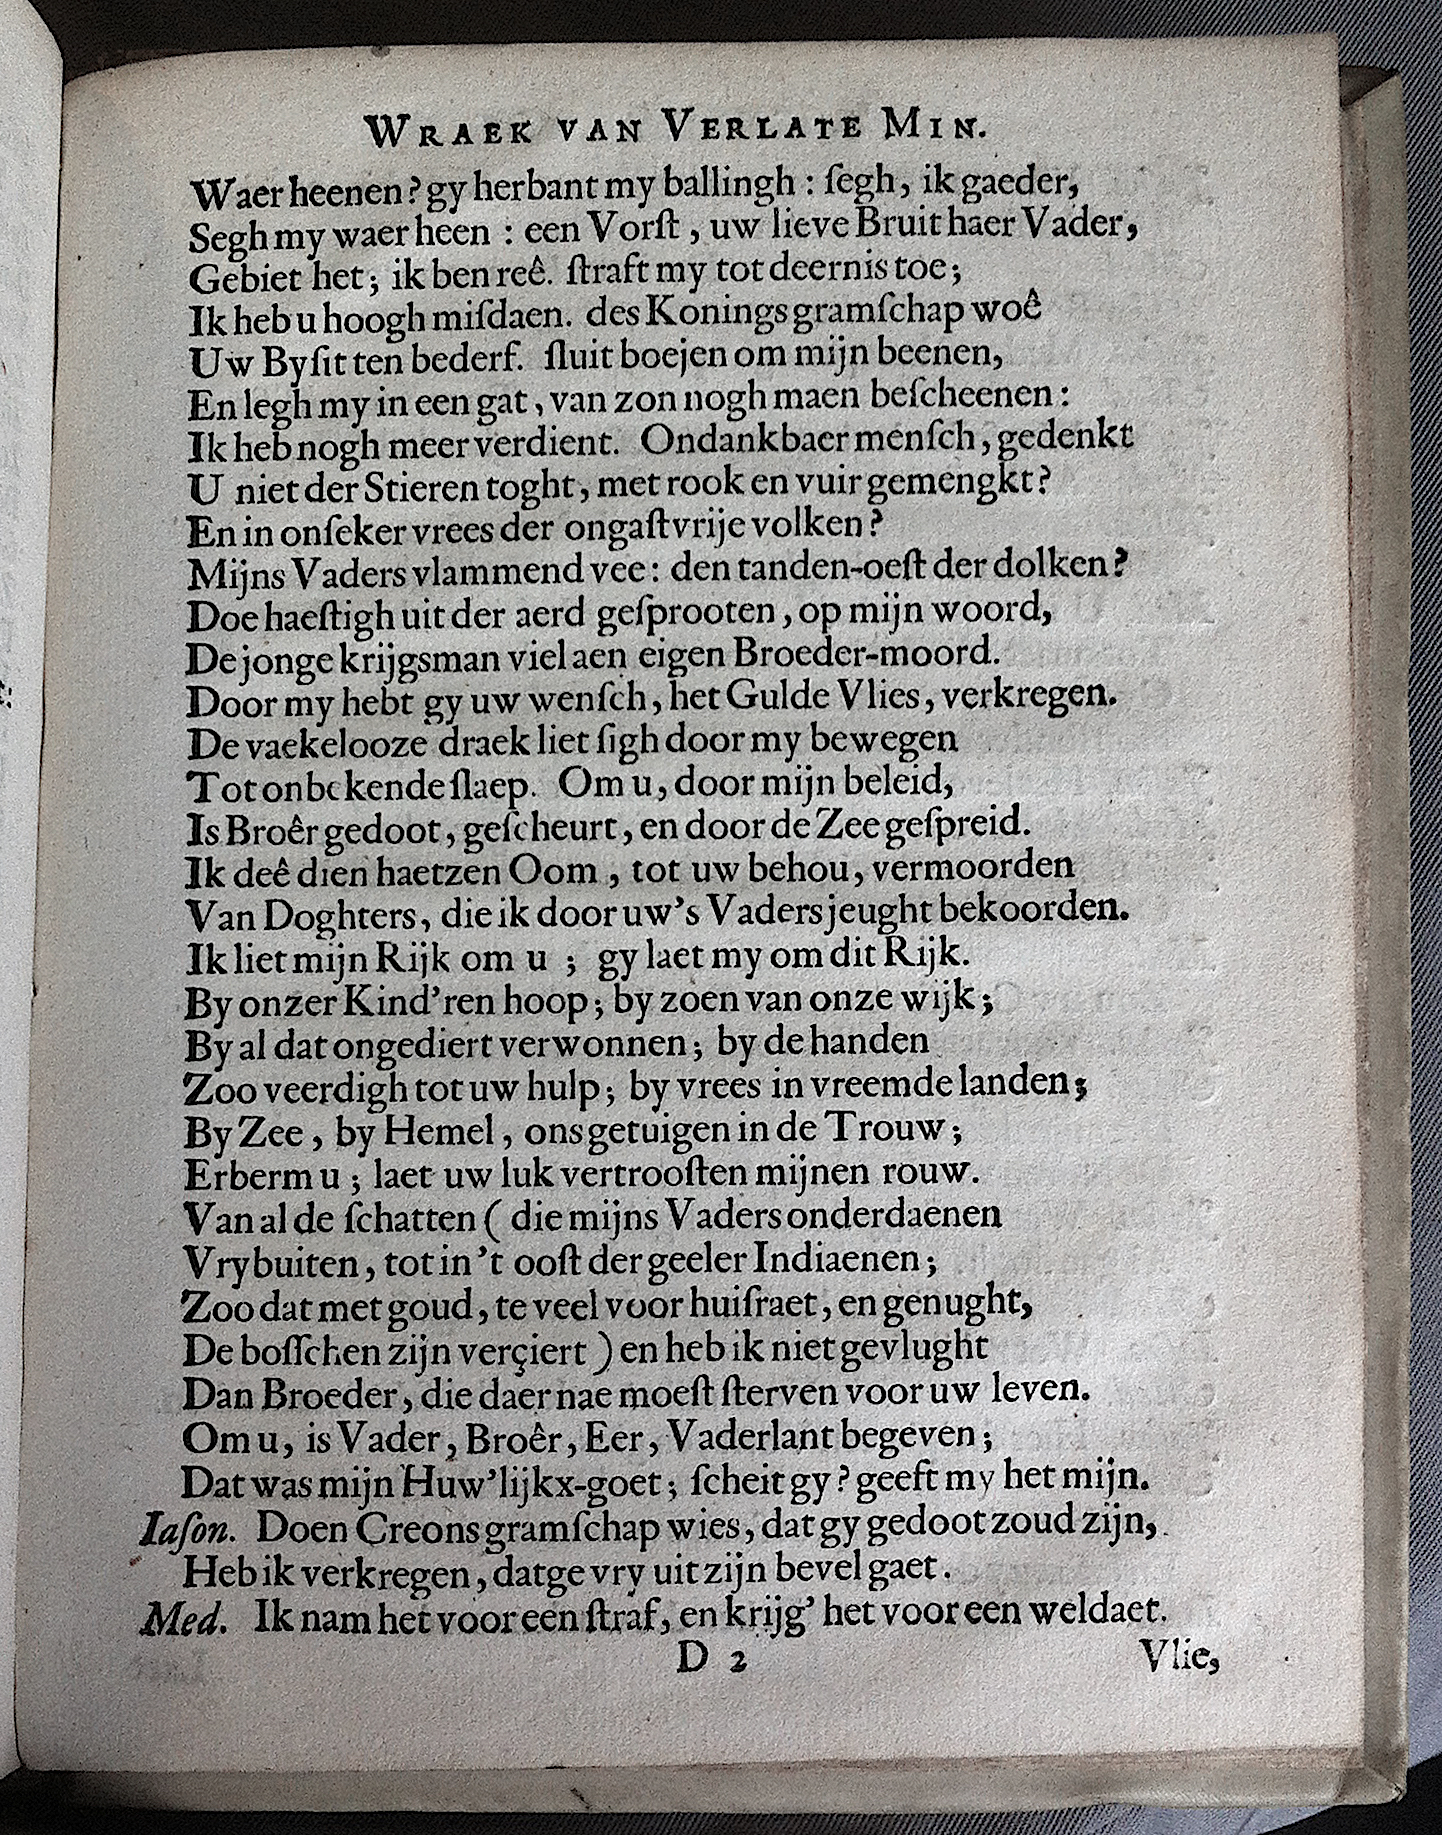 WRAEK VAN VERLATE MIN.
Waer heenen? gy herbant my ballingh : ſegh, ik gaeder,
Segh my waer heen : een Vorſt, uw lieve Bruit haer Vader,
Gebiet het; ik ben reê. ſtraft my tot deernis toe;
Ik heb u hoogh miſdaen. des Konings gramſchap woê
Uw Byſit ten bederf. ſluit boejen om mijn beenen,
En legh my in een gat, van zon nogh maen beſcheenen:
Ik heb nogh meer verdient. Ondankbaer menſch, gedenkt
U niet der Stieren toght, met rook en vuir gemengkt?
En in onſeker vrees der ongaſtvrije volken?
Mijns Vaders vlammend vee: den tanden-oeſt der dolken?
Doe haeſtigh uit der aerd geſprooten, op mijn woord,
De jonge krijgsman viel aen eigen Broeder-moord.
Door my hebt gy uw wenſch, het Gulde Vlies, verkregen.
De vaekelooze draek liet ſigh door my bewegen
Tot onbekende ſlaep. Om u, door mijn beleid,
Is Broêr gedoot, geſcheurt, en door de Zee geſpreid.
Ik deê dien haetzen Oom, tot uw behou, vermoorden
Van Doghters, die ik door uw's Vaders jeught bekoorden.
Ik liet mijn Rijk om u ; gy laet my om dit Rijk.
By onzer Kind'ren hoop; by zoen van onze wijk;
By al dat ongediert verwonnen; by de handen
Zoo veerdigh tot uw hulp; by vrees in vreemde landen;
By Zee, by Hemel, ons getuigen in de Trouw;
Erberm u ; laet uw luk vertrooſten mijnen rouw.
Van al de ſchatten ( die mijns Vaders onderdaenen
Vrybuiten, tot in 't ooſt der geeler Indiaenen;
Zoo dat met goud, te veel voor huiſraet, en genught,
De boſſchen zijn verçiert ) en heb ik niet gevlught
Dan Broeder, die daer nae moeſt ſterven voor uw leven.
Om u, is Vader, Broêr, Eer, Vaderlant begeven;
Dat was mijn Huw'lijkx-goet; ſcheit gy? geeft my het mijn.
Iaſon. Doen Creons gramſchap wies, dat gy gedoot zoud zijn,
Heb ik verkregen, datge vry uit zijn bevel gaet.
Med. Ik nam het voor een ſtraf, en krijg' het voor een weldaet.
D 2 Vlie,